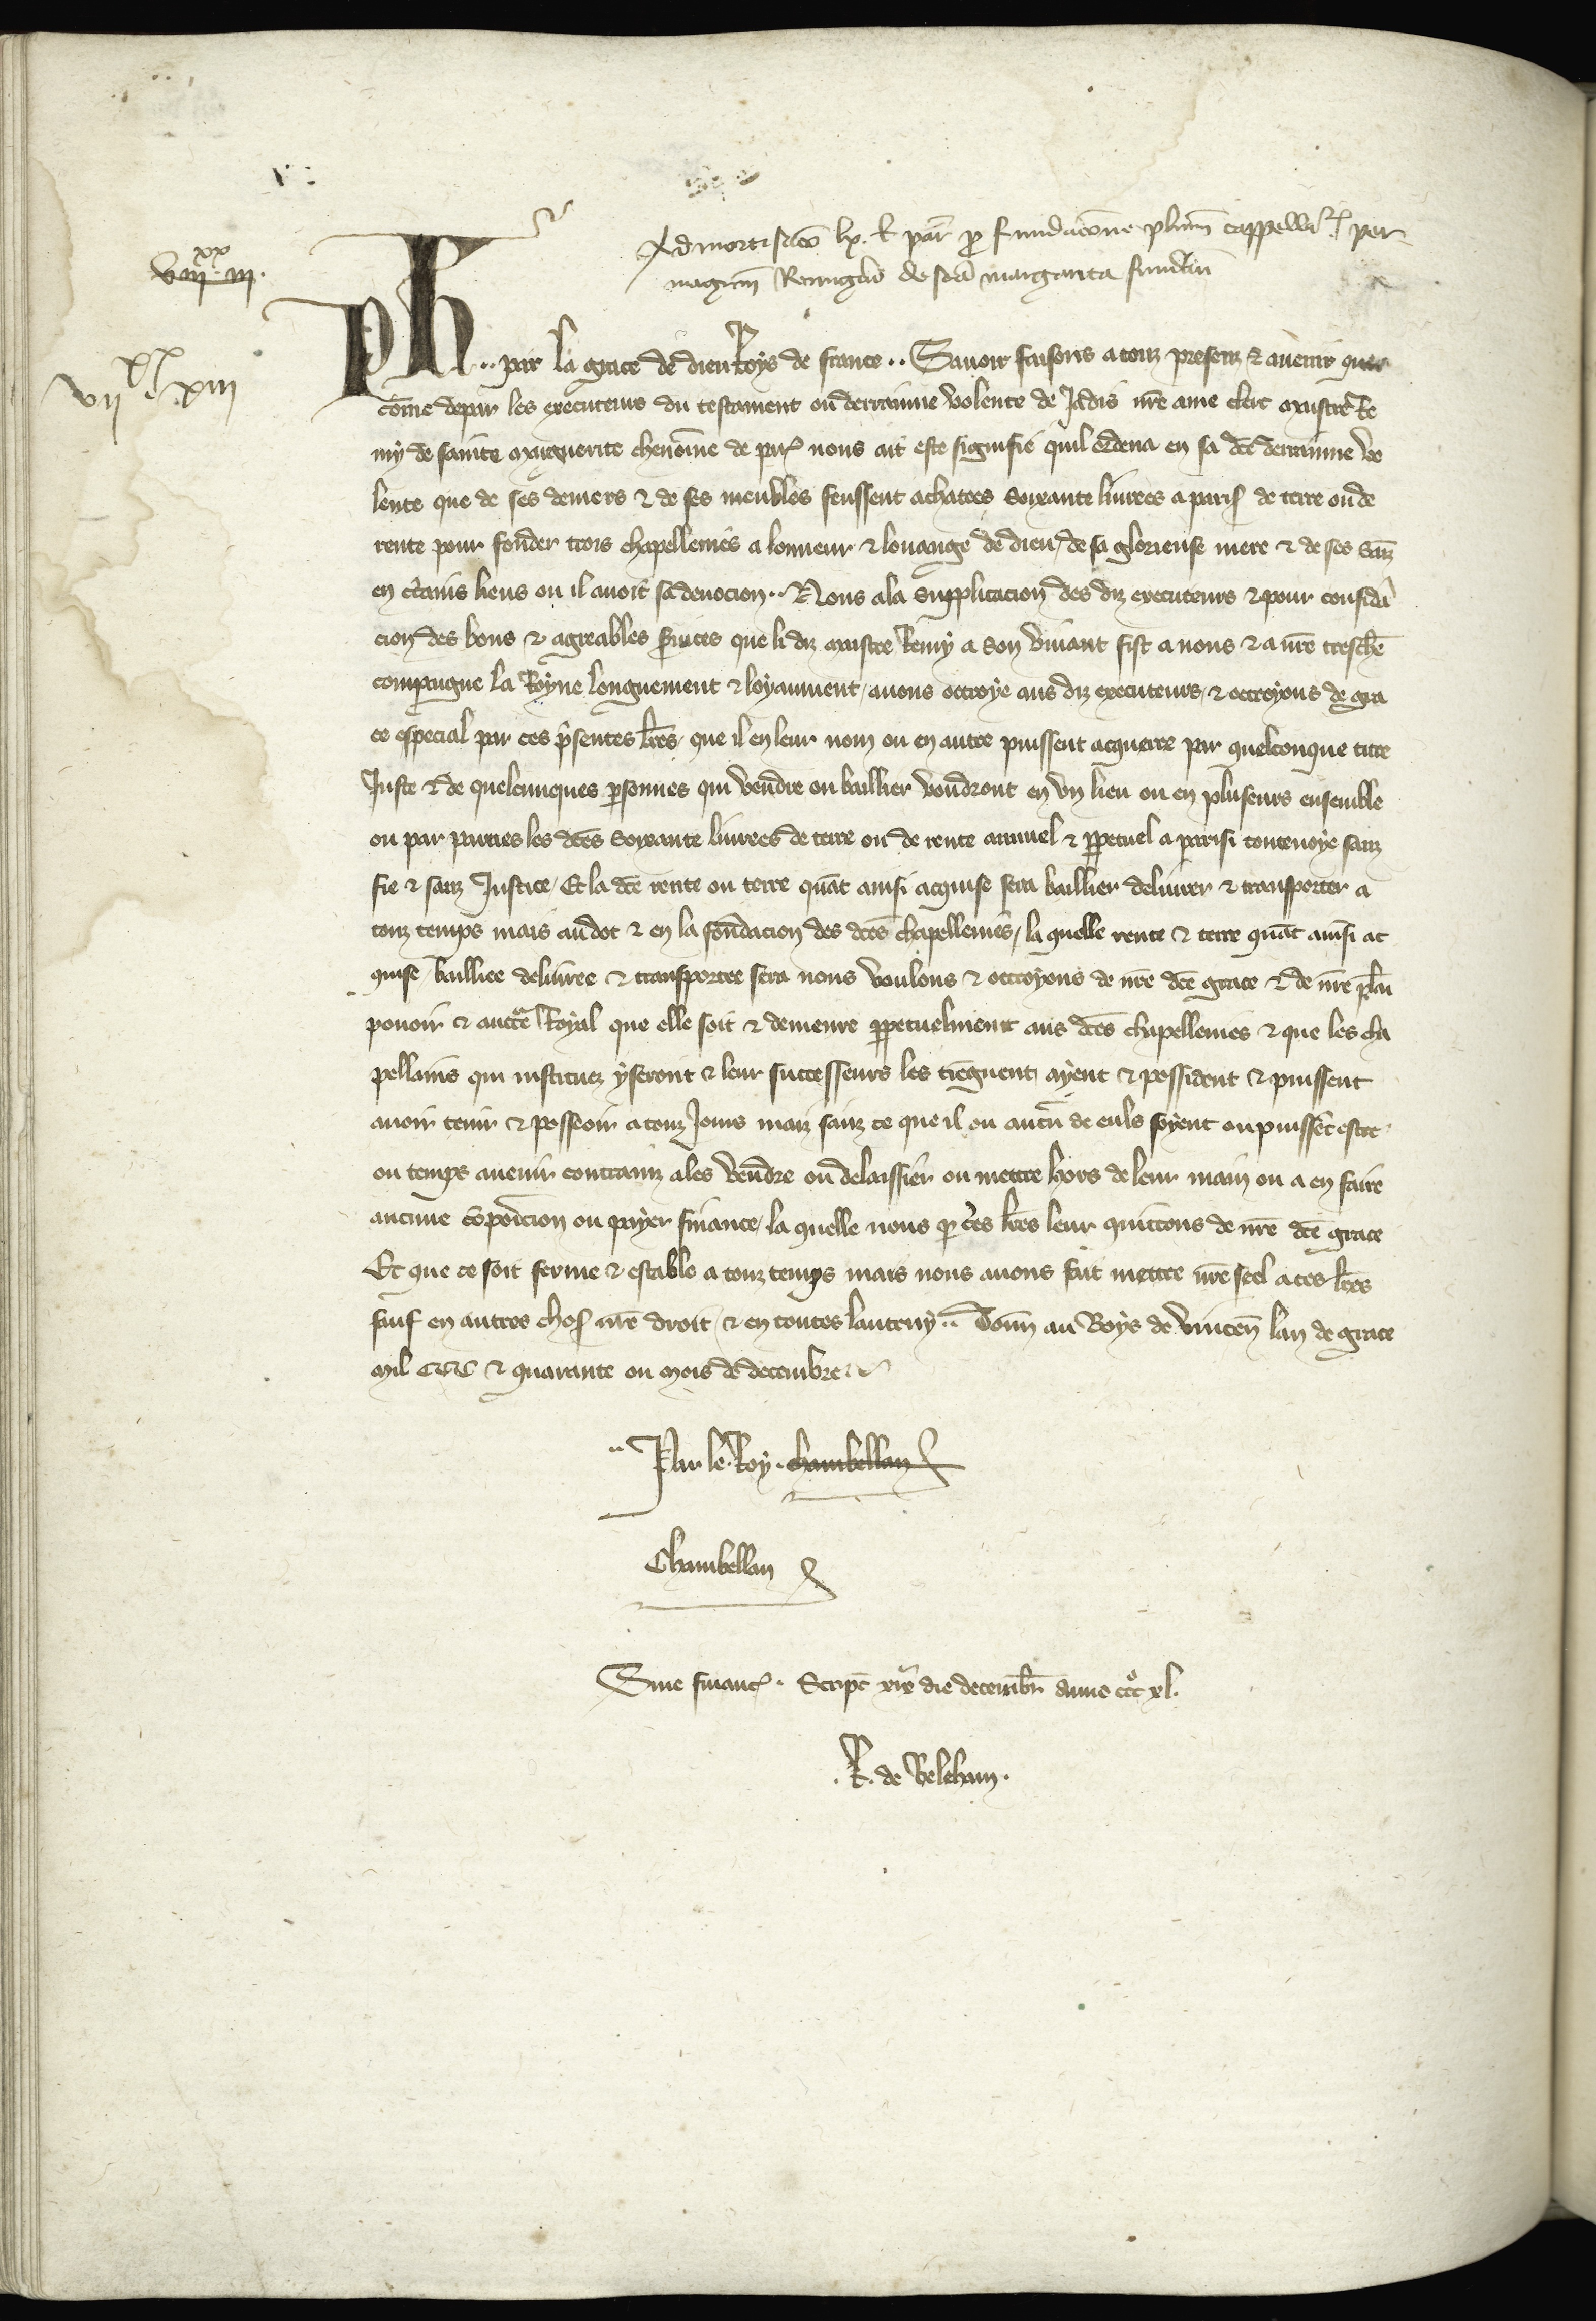 Admortisacō lx. ł par̄ ꝓ fundacōne plīum cappellaꝝ per
magrm̄ Remigiū de scā margarita fundaꝝ
viijˣˣ iij.
vijˣˣ xiij
Ph .. par la grace de dieu Roys de france .. Sauoir faisons a touz presenz & auenir que
cōme depar les executeurs du testament ou derrainne volente de Jadis nr̄e ame clerc maistre Re
my de sainte Marguerite chenoīne de par̄ nous ait este signifie quil ordena en sa dc̄e derrainne vo
lente que de ses deniers & de ses meubles feussent achatees soixante liurees a paris̄ de terre ou de
rente pour fonder trois chapellenies a lonneur & louange de dieu, de sa glorieuse mere & de ses sainz
en c̄tains lieus ou il auoit sa deuocion .. Nous ala supplicacion des diz executeurs & pour considā
cion des bons & agreables s̄uices que li diz maistre Remy a son viuant fist a nous & a nr̄e treschē
compaigne la Royne longuement & loyaument, auons octroye aus diz executeurs, & octroyons de gra
ce especial par ces p̄sentes lr̄es, que il en leur nom ou en autre puissent acquerre par quelconque titre
Juste & de quelcunques ꝑsonnes qui vendre ou baillier voudront en vn lieu ou en pluseurs ensemble
ou par parties les dc̄es soixante liurees de terre ou de rente annuel & ꝑpetuel a parisi tournoye sanz
fie & sanz Justice, Et la dc̄e rente ou terre quāt ainsi acquise sera baillier deliurer & transporter a
touz temps mais au dot & en la fondacion des dc̄es chapellenies, la quelle rente & terre quāt ainsi ac
quise, bailliee deliuree & transportee sera nous voulons & octroyons de nr̄e dc̄e grace & de nr̄e plain
pouoir & auctē Royal que elle soit & demeure ꝑpetuelment aus dc̄es chapellenies & que les cha
pellains qui instituez y seront & leur successeurs les tiēgnent, ayent & possident & puissent
auoir tenir & posseoir a touz Jours maiz sanz ce que il ou aucū de euls soyent ou puissēt estre
ou temps auenir contrainz ales vendre ou delaissier ou mettre hors de leur main ou a en faire
aucune cōposicion ou payer finance, la quelle nous ꝑ ces lr̄es leur quittons de nr̄e dc̄e grace
Et que ce soit ferme & estable a touz temps mais nous auons fait mettre nr̄e seel a ces lr̄es
sauf en autres chos̄ nr̄e droit, & en toutes lautruy .. Donn̄ au Boys de vincen̄ lan de grace
mil CCC & quarante ou mois de decembre
Par le Roy. chambellan
Chambellan
Sine financ̄. Script̄ xixª die decembr̄ anno cccº xl.
.R. de Beleham.